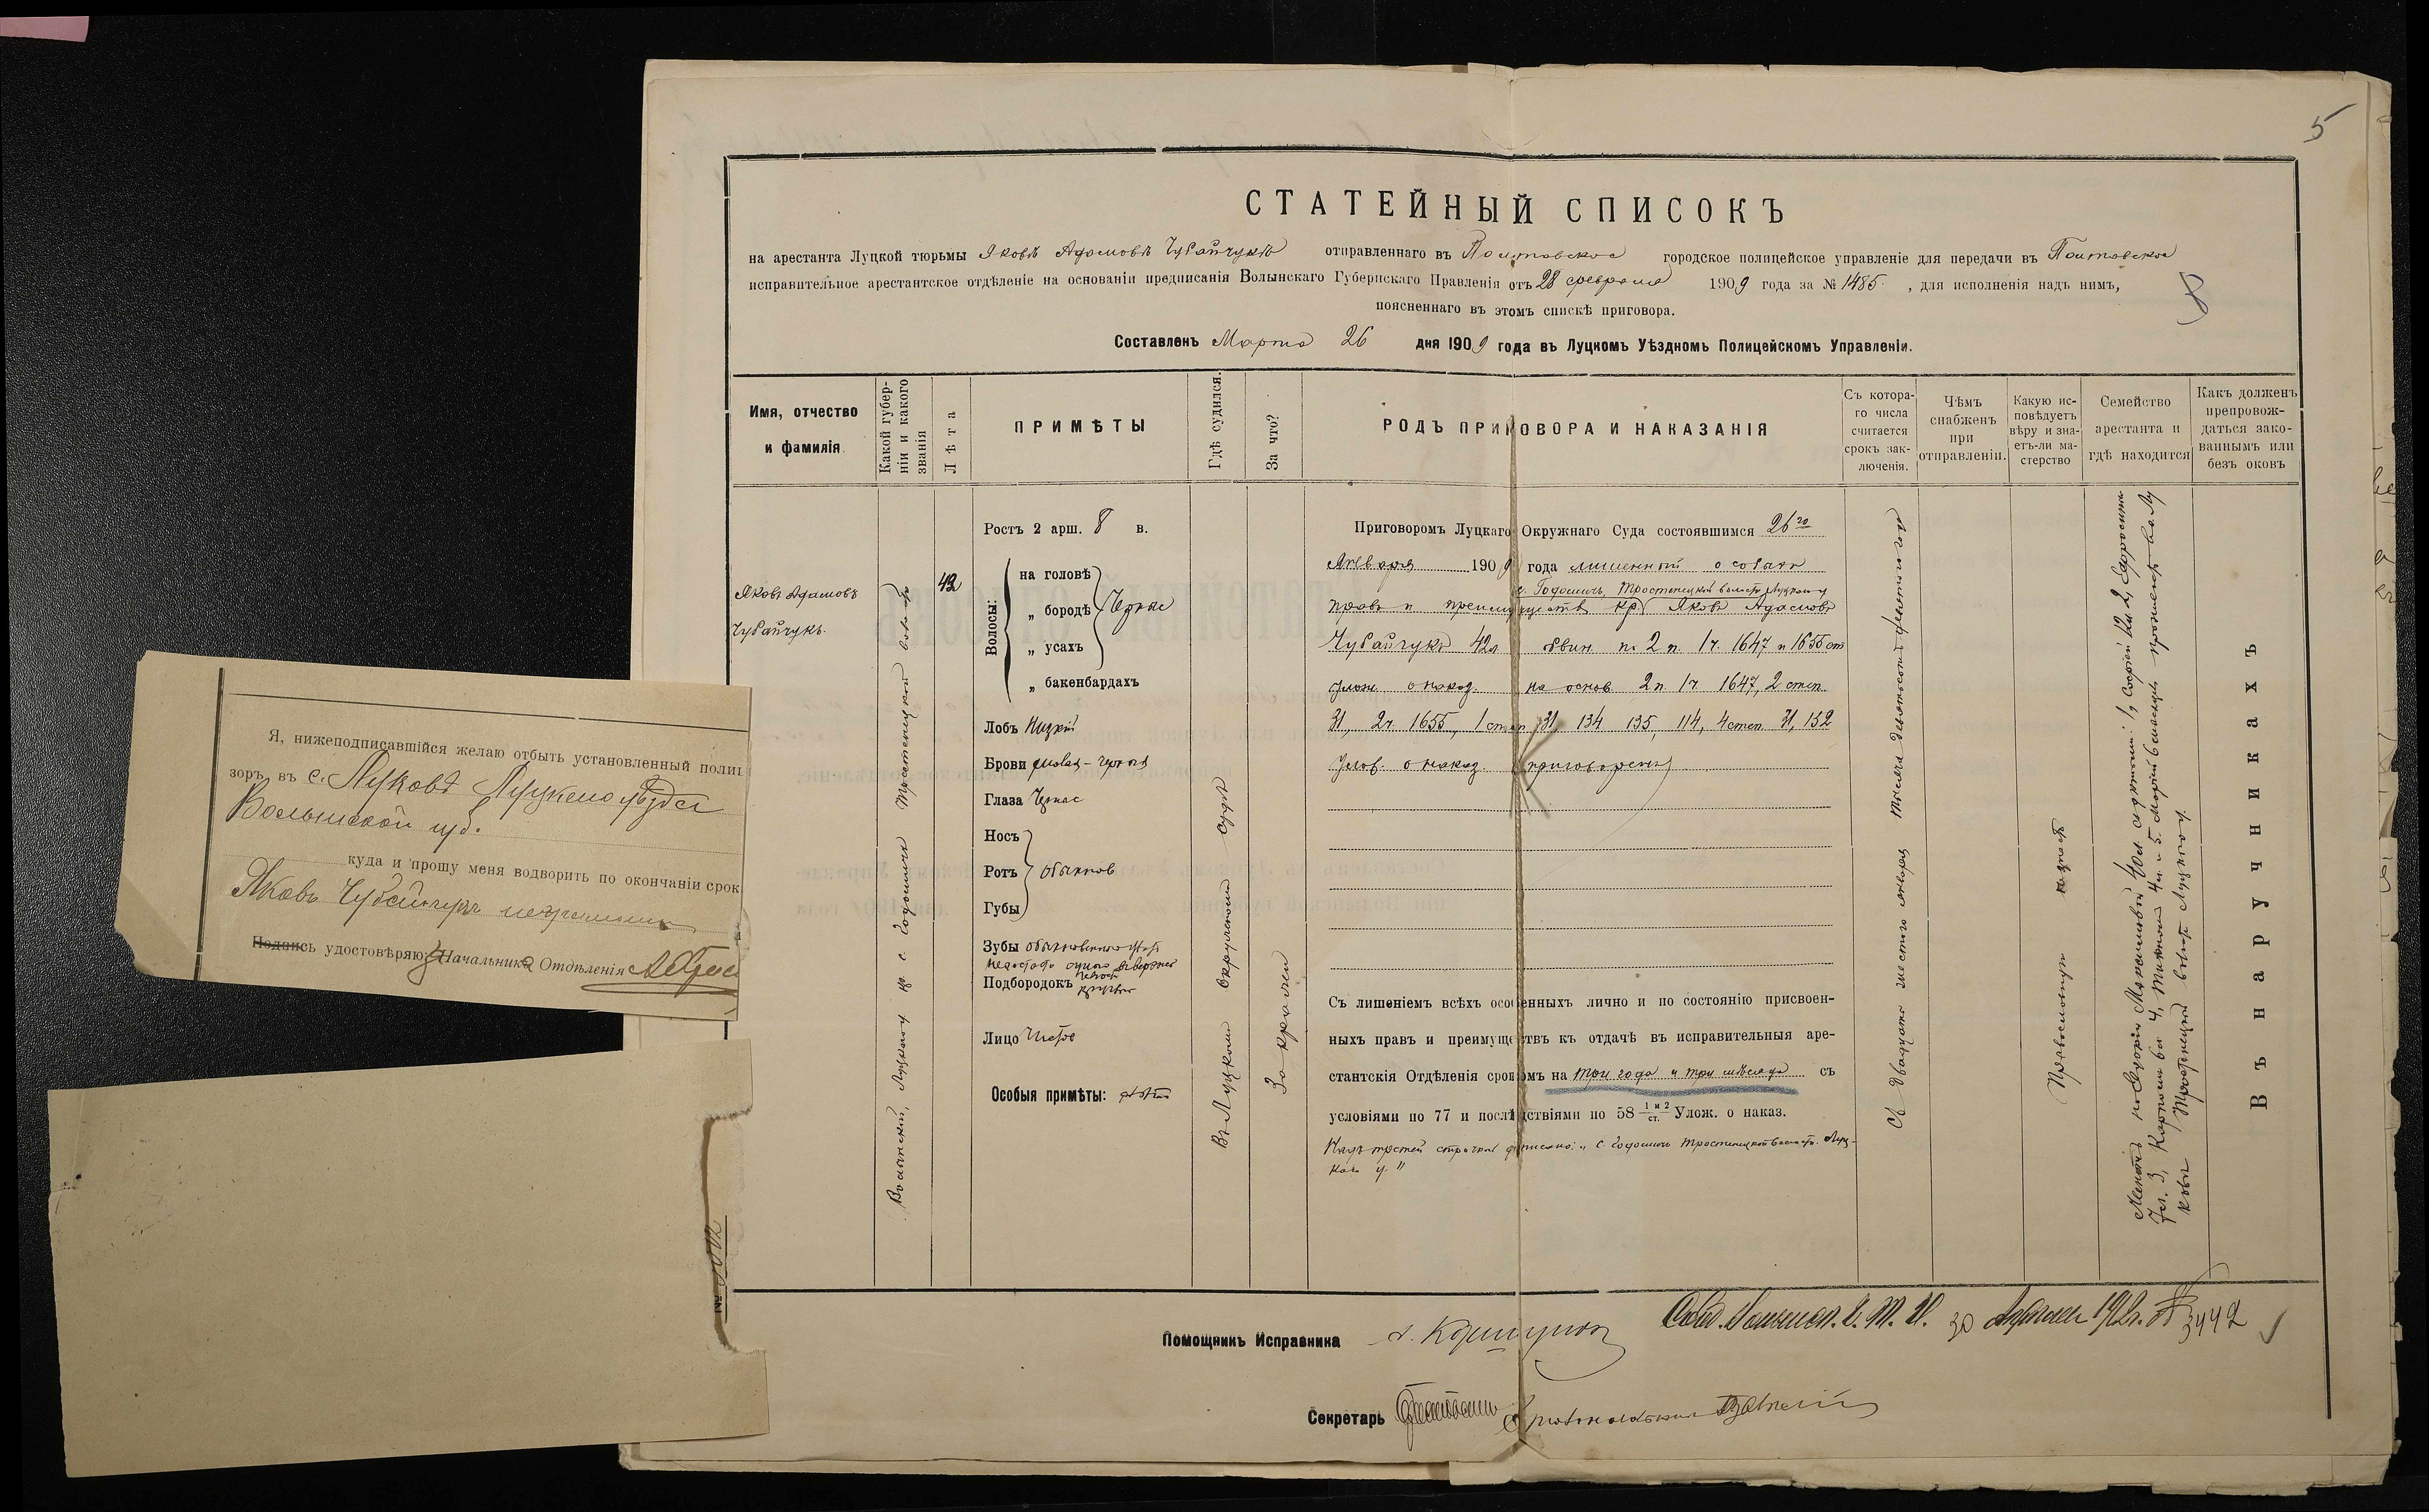 5
СТАТЕЙНЫЙ СПИСОКЪ
на арестанта Луцкой тюрьмы Яковъ Адамовъ Чубайчукъ отправленнаго въ Полтавское городское полицейское управленіе для передачи въ Полтавское
исправительное арестантское отдѣленіе на основаніи предписанія Волынскаго Губернскаго Правленія отъ 28 февраля 1909 года за № 1485 , для исполненія надъ нимъ,
8
поясненнаго въ этомъ спискѣ приговора.
Составленъ Марта 26 дня 1909 года въ Луцкомъ Уѣздномъ Полицейскомъ Управленіи.
Имя, отчество
и фамилія
Какой губер-
ніи и какого
званія
Лѣта
ПРИМѢТЫ
Гдѣ судился.
За что?
РОДЪ ПРИГОВОРА И НАКАЗАНІЯ
Съ котора-
го числа
считается
срокъ зак-
люченія.
Чѣмъ
снабженъ
при
отправленіи.
Какую ис-
повѣдуетъ
вѣру и зна-
етъ-ли ма-
стерство
Семейство
арестанта и
гдѣ находится
Какъ долженъ
препровож-
даться зако-
ваннымъ или
безъ оковъ
Яковъ Адамовъ
Чубайчукъ.
Волынской, Луцкаго у. кр. с. Годомичъ Тростенецкой волости
42
Ростъ 2 арш. 8 в.
Волосы:
на головѣ
„ бородѣ
„ усахъ
„ бакенбардахъ
Черные
Лобъ Низкій
Брови
Глаза Черные
Носъ
Ротъ
Губы
обыкнов
Зубы обыкновенные
Подбородокъ
Лицо Чистое
Особыя примѣты:
Въ Луцкомъ Окружномъ Судѣ
За кражи
Приговоромъ Луцкаго Окружнаго Суда состоявшимся 26го
Января 1909 года лишенный особыхъ
с. Годомичъ, Тростенецкой волости Луцкаго у
правъ и преимуществъ кр. Яковъ Адамовъ
Чубайчукъ 42 л обвин. по 2 п. 1 ч. 1647 и 1655 ст
улож. о наказ. на основ. 2 п. 1 ч. 1647, 2 степ.
31, 2 ч. 1655, 1 степ. 31, 134, 135, 114, 4 степ. 31, 152
улож. о наказ. приговоренъ
Съ лишеніемъ всѣхъ особенныхъ лично и по состоянію присвоен-
ныхъ правъ и преимуществъ къ отдачѣ въ исправительныя аре-
стантскія Отдѣленія срокомъ на три года и три мѣсяца съ
условіями по 77 и послѣдствіями по 58 1 и 2 ст. Улож. о наказ.
Надъ третей строчкой написано: „с. Годомичъ Тростенецкой волости. Луц-
каго у.“
Съ двадцать шестого января тысяча девятьсотъ девятаго года
Православную
Въ наручникахъ
Помощникъ Исправника
30 Апреля 1912 г. № 3442
Секретарь
Я, нижеподписавшійся желаю отбыть установленный полиц
зоръ, въ с. Луковъ Луцкаго уѣзда
Волынской губ.
куда и прошу меня водворить по окончаніи срок
Яковъ Чубайчукъ неграмотн
Подпись удостовѣряю Начальника Отдѣленія